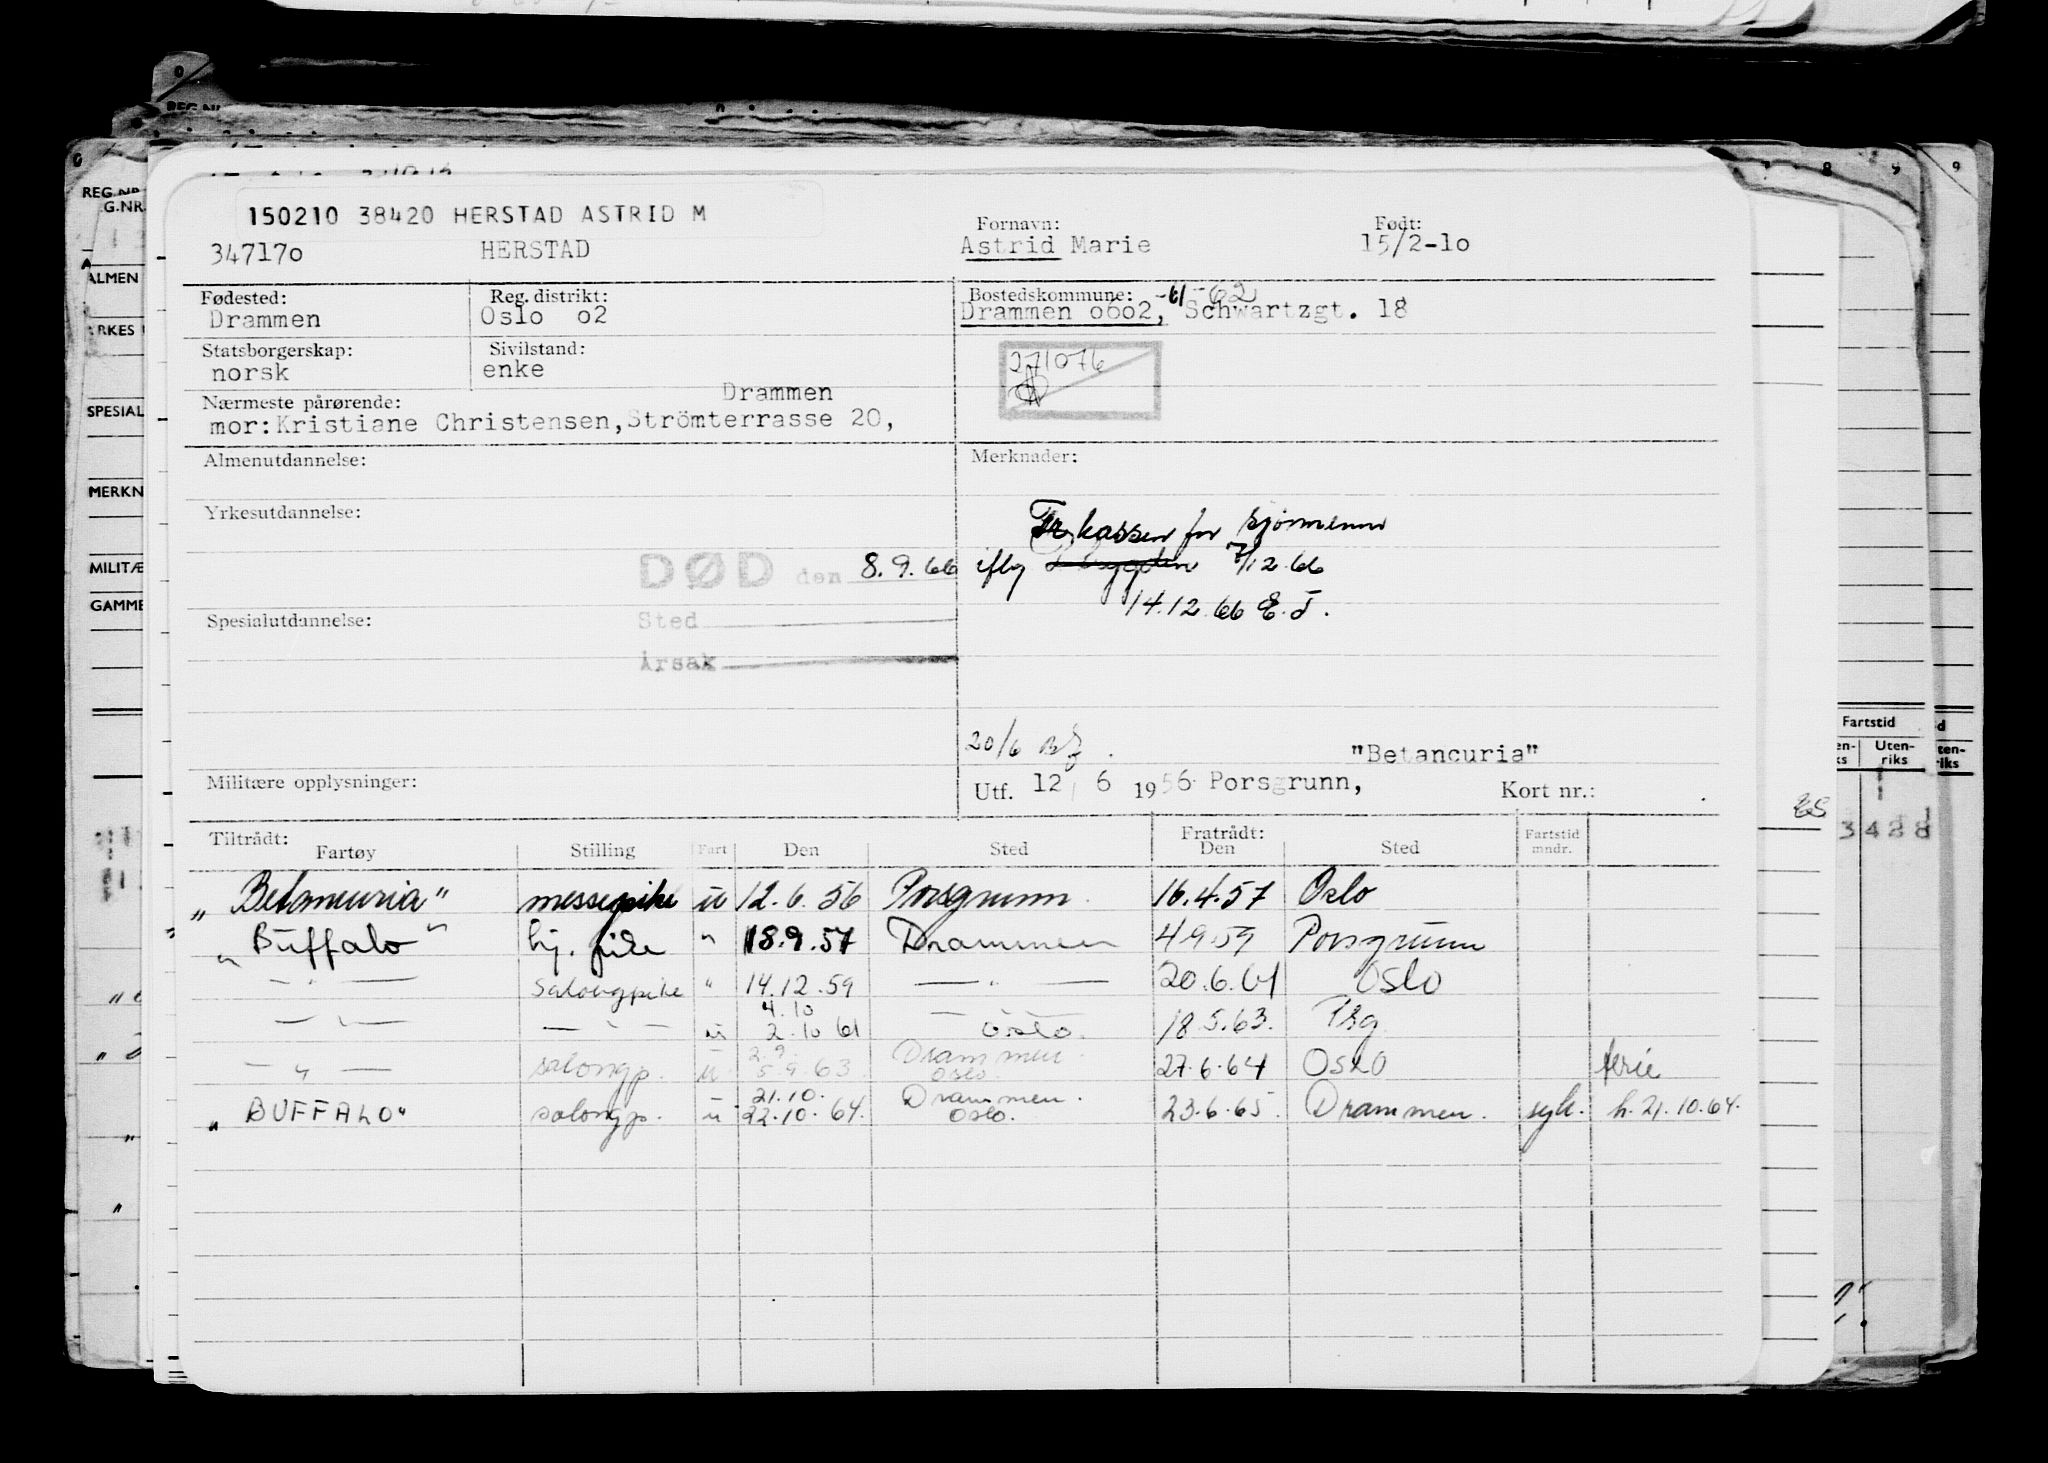 150210 38420 HERSTAD ASTRID M
347170 HERSTAD
Fornavn: Astrid Marie
Født: 15/2-1o
Fødested: Drammen
Reg. distrikt: Oslo o2
Bostedskommune: -61-62
Drammen o6o2, Schwartzgt. 18
Statsborgerskap: norsk
Sivilstand: enke
271076
Nærmeste pårørende: Drammen
mor: Kristiane Christensen, Strömterrasse 20,
Almenutdannelse:
Merknader:
Yrkesutdannelse:
Tr kassen for sjömenn
DØD den 8.9.66 iflg 7/12.66
14.12.66 E.T.
Spesialutdannelse:
Sted
Årsak
20/6
"Betancuria"
Militære opplysninger:
Utf. 12 6 1956 Porsgrunn, Kort nr.:
Tiltrådt: Fratrådt:
Fartøy Stilling Fart Den Sted Den Sted Fartstid mndr.
"Betancuria" messepike u 12.6.56 Porsgrunn 16.4.57 Oslo
"Buffalo" bj. pike " 18.9.57 Drammen 4.9.59 Porsgrunn
— " — salongpike " 14.12.59 — " — 20.6.61 Oslo
— " — — " — u 4.10 2.10 61 — " — Oslo. 18.5.63. Prg
— " — salongp. u 2.9 5.9.63 Drammen. Oslo. 27.6.64 Oslo ferie
"BUFFALO" salongp. u 21.10. 22.10.64. Drammen. Oslo. 23.6.65. Drammen. syk. h. 21.10.64.
REG.NR.
G.NR.
ALMEN
RKES
SPESIAL
MERKN
MILITÆ
GAMME
8 9 9
Fartstid
Uten-
riks
ten-
riks
3 428